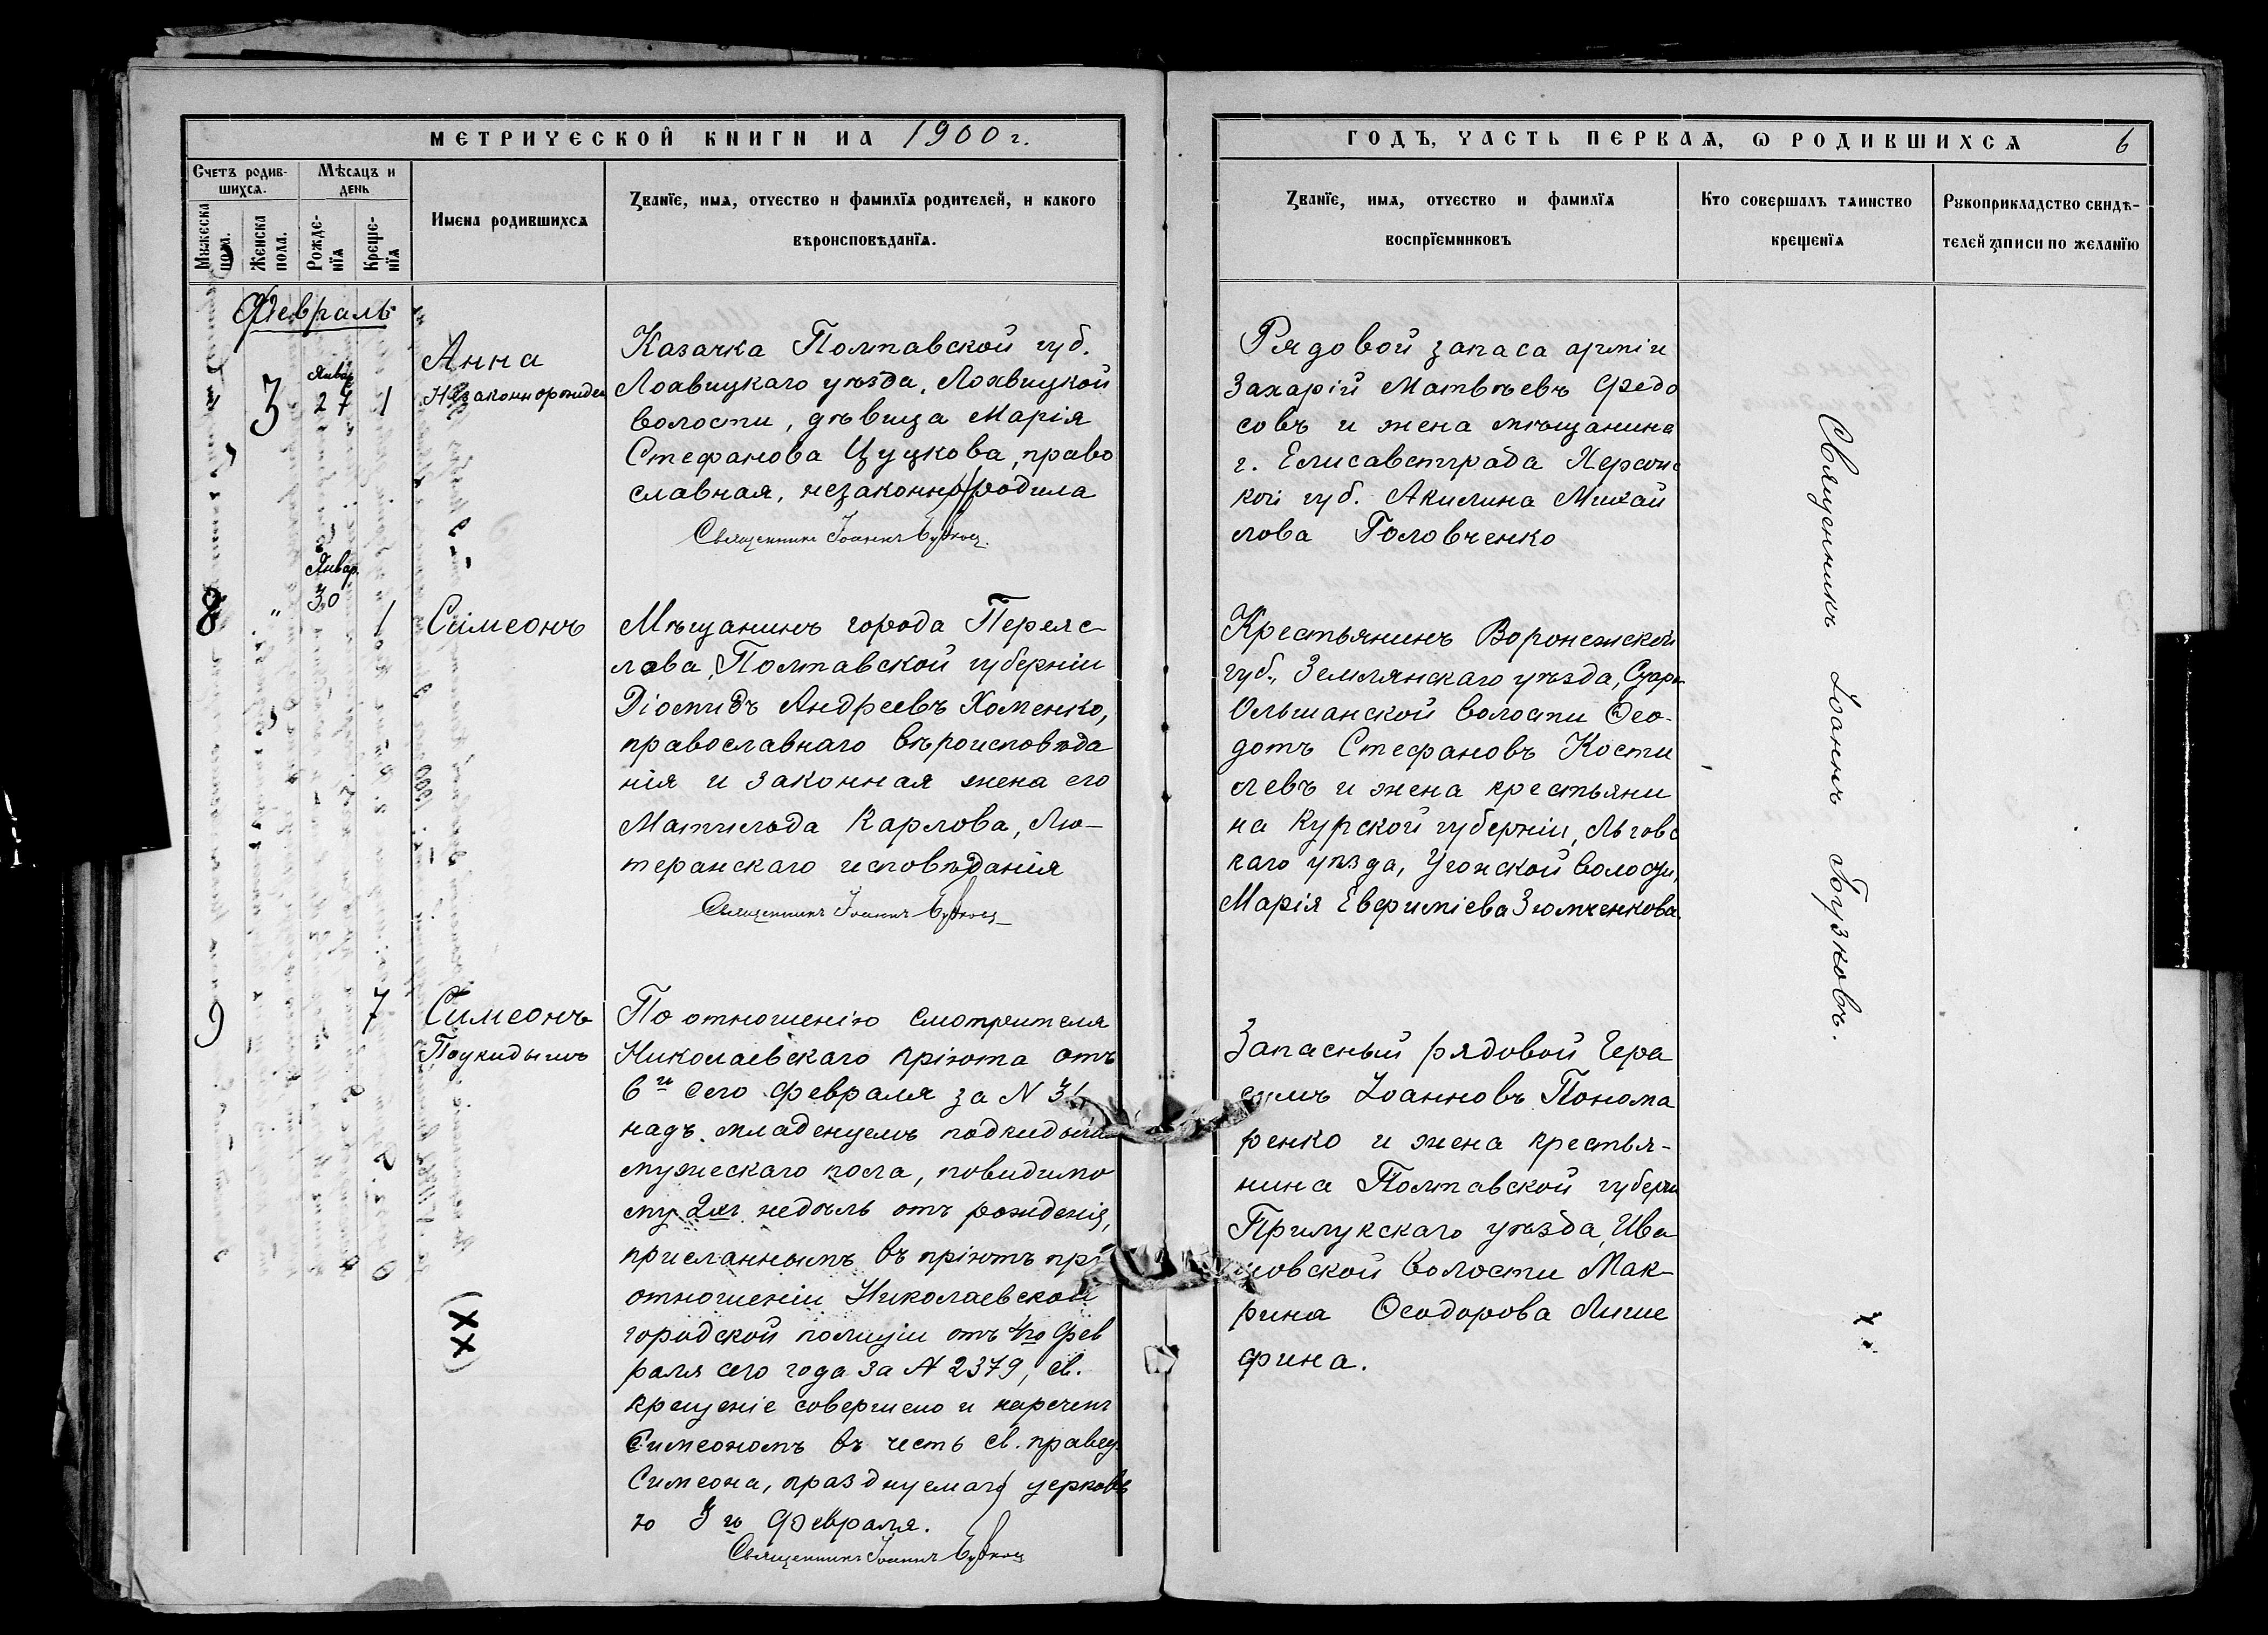 МЕТРИЧЕСКОЙ КНИГИ НА 1900 г.
Счетъ родив-
шихся.
Мѣсяцъ и
день
Мужеска
пола.
Женска
пола.
Рожде-
нїя
Креще-
нїя
Имена родившихся
Званїе, имя, отчество и фамилїя родителей, и какого
вѣроисповѣданїя.
Февраль
3
Январ.
27
1
Анна
Незаконнорожден
Казачка Полтавской губ.
Лохвицкаго уѣзда, Лохвицкой
волости, дѣвица Марія
Стефанова Цуцкова, право
славная, незаконно родила
Священникъ Іоаннъ
8
"
Январ.
30
1
Симеонъ
Мѣщанинъ города Переяс-
лава, Полтавской губерніи
Діомидъ Андреевъ Хоменко,
православнаго вѣроисповѣда
нія и законная жена его
Матильда Карлова, Лю-
теранскаго исповѣданія
Священникъ Іоаннъ
9
7
Симеонъ
Подкидышъ
По отношенію смотрителя
Николаевскаго пріюта отъ
6го сего февраля за N 31
надъ младенцемъ подкидыш
мужескаго пола, повидимо
му 2хъ недѣль отъ рожденія,
присланнымъ въ пріютъ при
отношеніи Николаевской
городской полиціи отъ 4го Фев
раля сего года за N 2379, св.
крещеніе совершено и нареченъ
Симеономъ въ честь св. правед.
Симеона, празднуемаго церковь
ю 3го Февраля.
Священникъ Іоаннъ
(XX)
ГОДЪ, ЧАСТЬ ПЕРВАЯ, Ѡ РОДИВШИХСЯ 6
Званїе, имя, отчество и фамилїя
воспрїемниковъ
Кто совершалъ таинство
крещенїя
Рукоприкладство свидѣ-
телей записи по желанїю
Рядовой запаса арміи
Захарій Матвѣевъ Федо
совъ и жена мѣщанина
г. Елисаветграда Херсонс
кой губ. Акилина Михай
лова Головченко
Крестьянинъ Воронежской
губ., Землянскаго уѣзда, Старо
Ольшанской волости Ѳео-
дотъ Стефановъ Кости
левъ и жена крестьяни
на Курской губерніи, Льговс
каго уѣзда, Угонской волости,
Марія Евфиміева
Запасный рядовой Гера
симъ Іоанновъ Понома
ренко и жена крестья-
нина Полтавской губерніи
Прилукскаго уѣзда, Ива
новской волости Мак-
рина Ѳеодорова Лише
фина.
Священникъ Іоаннъ Гузковъ.